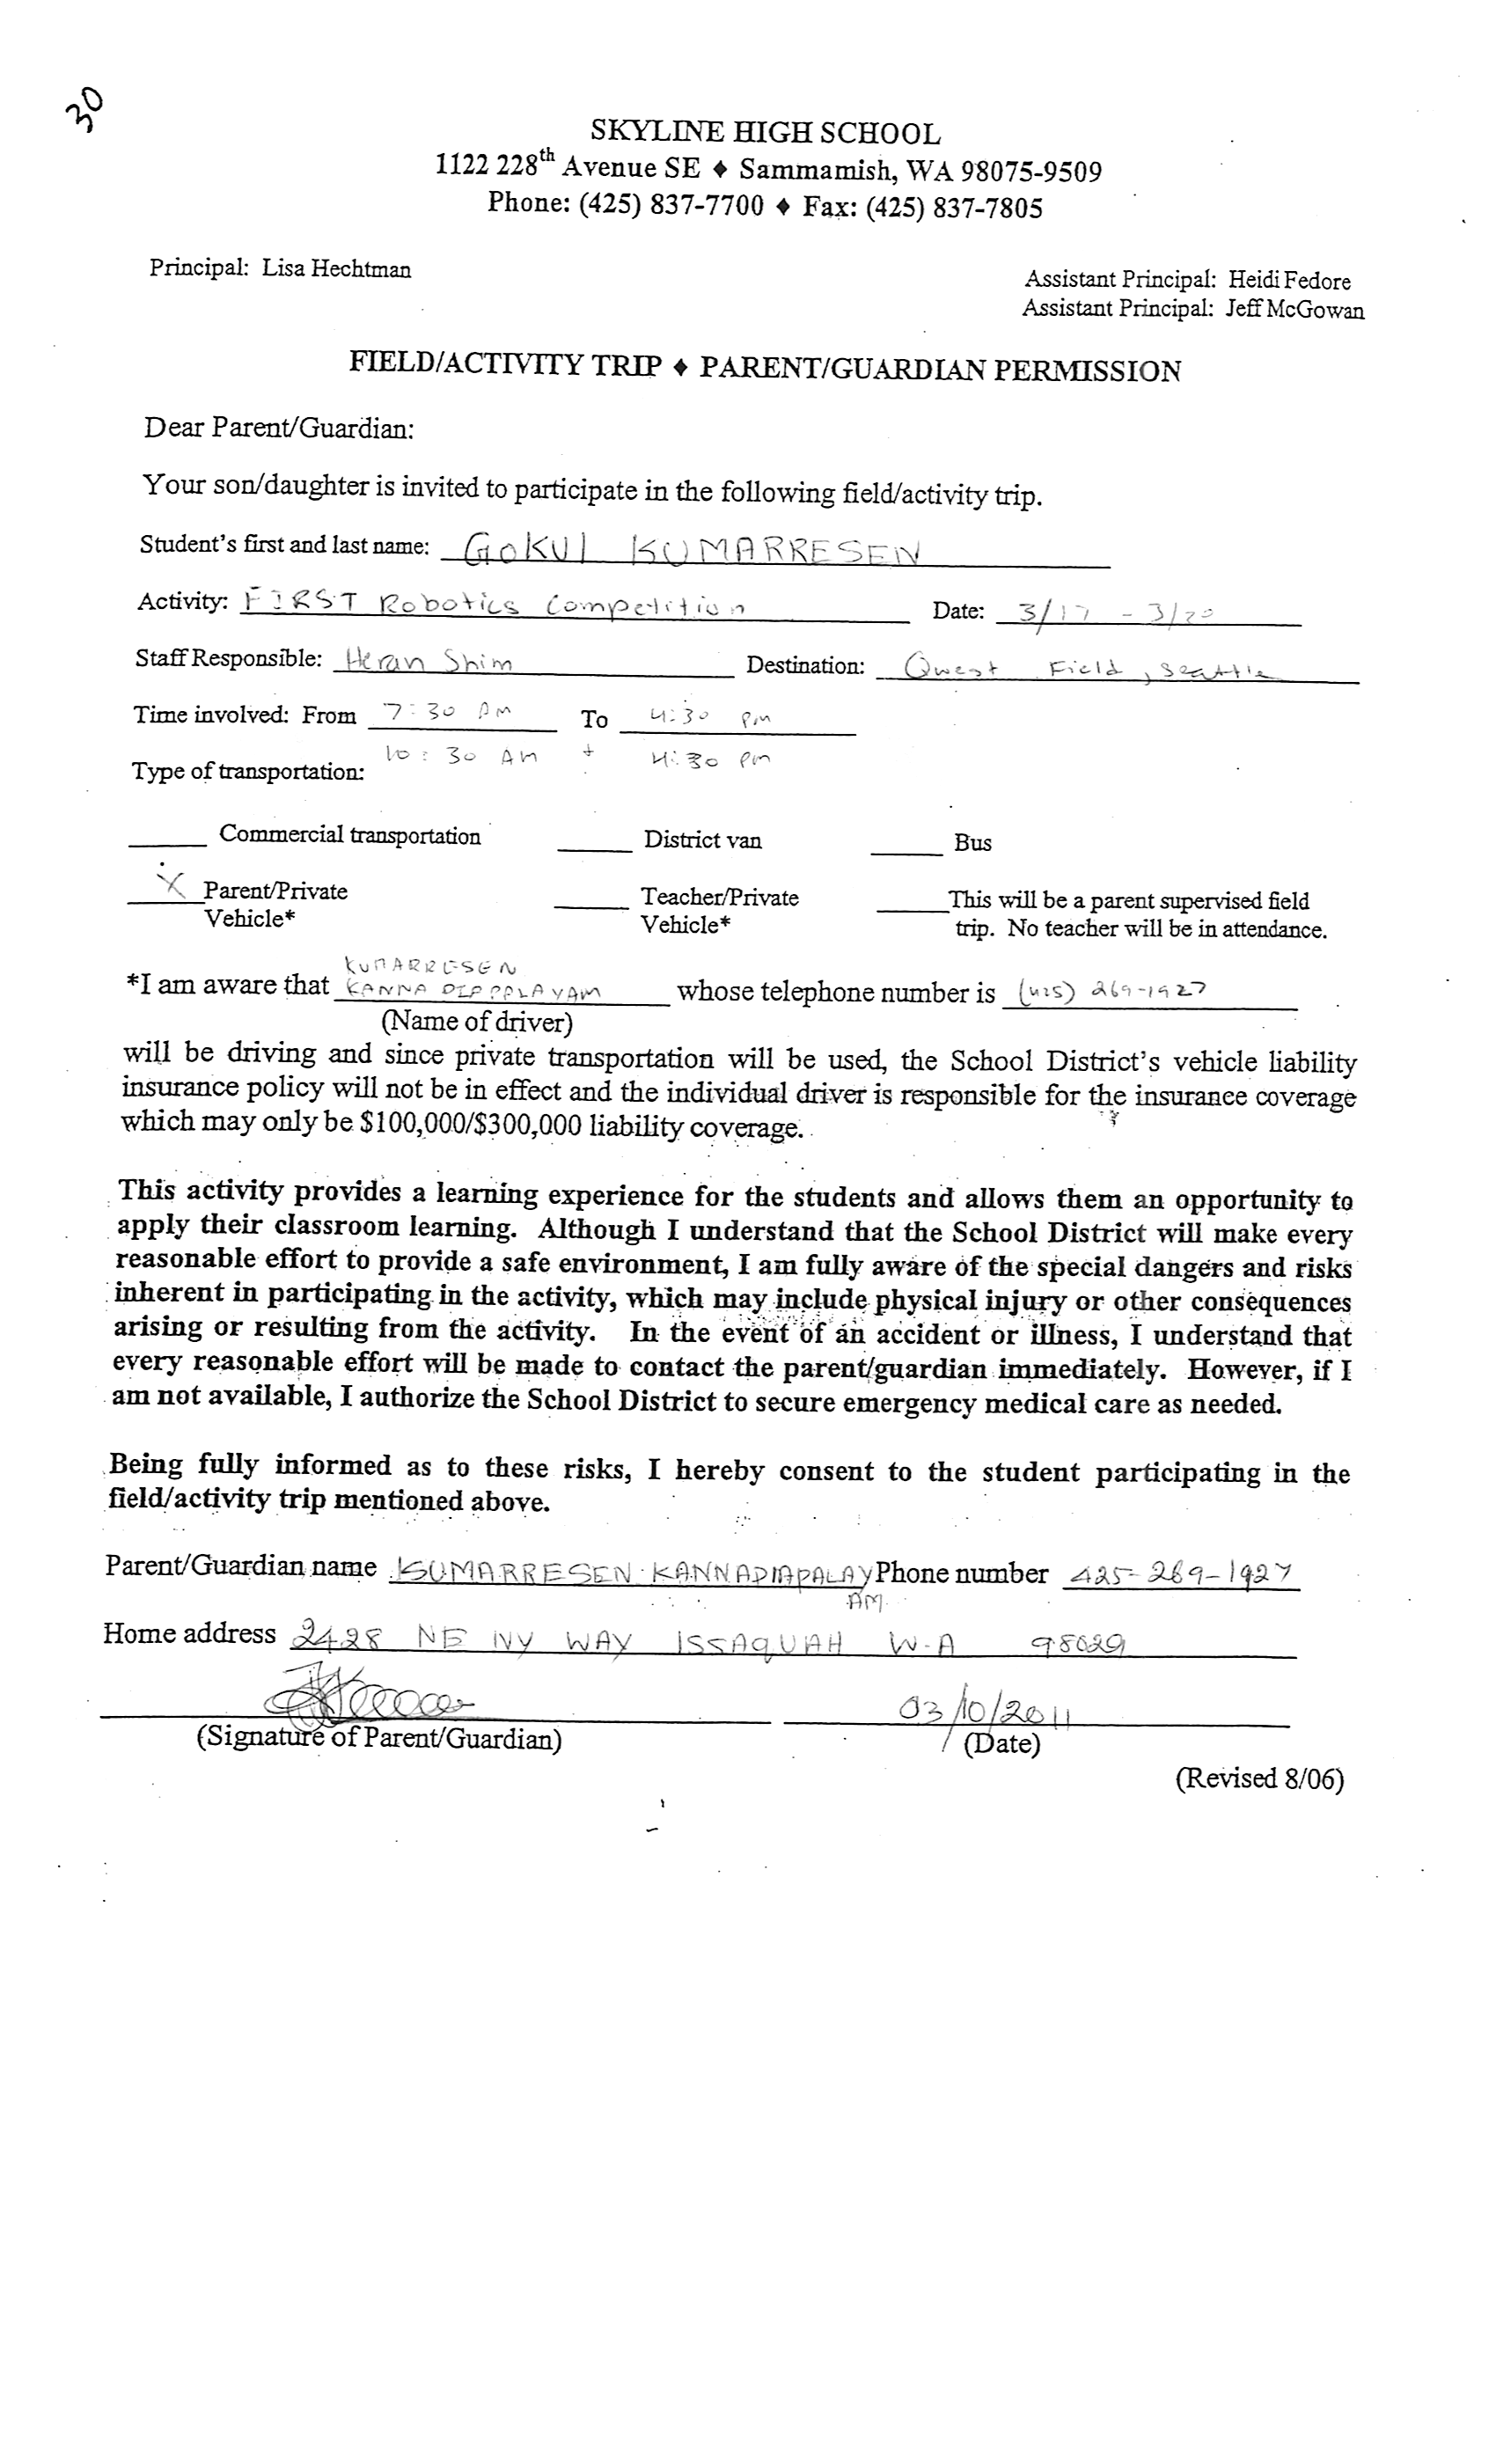 30
SKYLINE HIGH SCHOOL
1122 228th Avenue SE ♦ Sammamish, WA 98075-9509
Phone: (425) 837-7700 ♦ Fax: (425) 837-7805
Principal: Lisa Hechtman
Assistant Principal: Heidi Fedore
Assistant Principal: Jeff McGowan
FIELD/ACTIVITY TRIP ♦ PARENT/GUARDIAN PERMISSION
Dear Parent/Guardian:
Your son/daughter is invited to participate in the following field/activity trip.
Student's first and last name: GOKUL KUMARRESEN
Activity: FIRST Robotics Competition Date: 3/17 - 3/20
Staff Responsible: Heran Shim Destination: Qwest Field, Seattle
Time involved: From 7:30 AM To 4:30 pm
10:30 AM + 4:30 pm
Type of transportation:
Commercial transportation District van Bus
X Parent/Private Teacher/Private This will be a parent supervised field
Vehicle* Vehicle* trip. No teacher will be in attendance.
KUMARRESEN
*I am aware that KANNADIAPPLAYAM whose telephone number is (425) 269-1927
(Name of driver)
will be driving and since private transportation will be used, the School District's vehicle liability
insurance policy will not be in effect and the individual driver is responsible for the insurance coverage
which may only be $100,000/$300,000 liability coverage.
This activity provides a learning experience for the students and allows them an opportunity to
apply their classroom learning. Although I understand that the School District will make every
reasonable effort to provide a safe environment, I am fully aware of the special dangers and risks
inherent in participating in the activity, which may include physical injury or other consequences
arising or resulting from the activity. In the event of an accident or illness, I understand that
every reasonable effort will be made to contact the parent/guardian immediately. However, if I
am not available, I authorize the School District to secure emergency medical care as needed.
Being fully informed as to these risks, I hereby consent to the student participating in the
field/activity trip mentioned above.
Parent/Guardian name KUMARRESEN KANNADIAPALAY Phone number 425-269-1927
AM
Home address 2428 NE IVY WAY ISSAQUAH W-A 98029
03/10/2011
(Signature of Parent/Guardian) (Date)
(Revised 8/06)